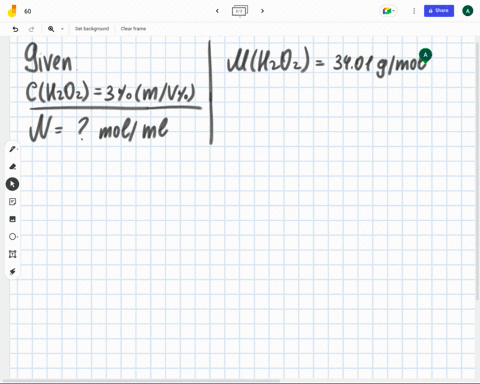 60
2/2
Share
A
Set background
Clear frame
Given
C(H₂O₂) = 3% (m/V%)
N = ? mol/ml
M(H₂O₂) = 34.01 g/mol
A